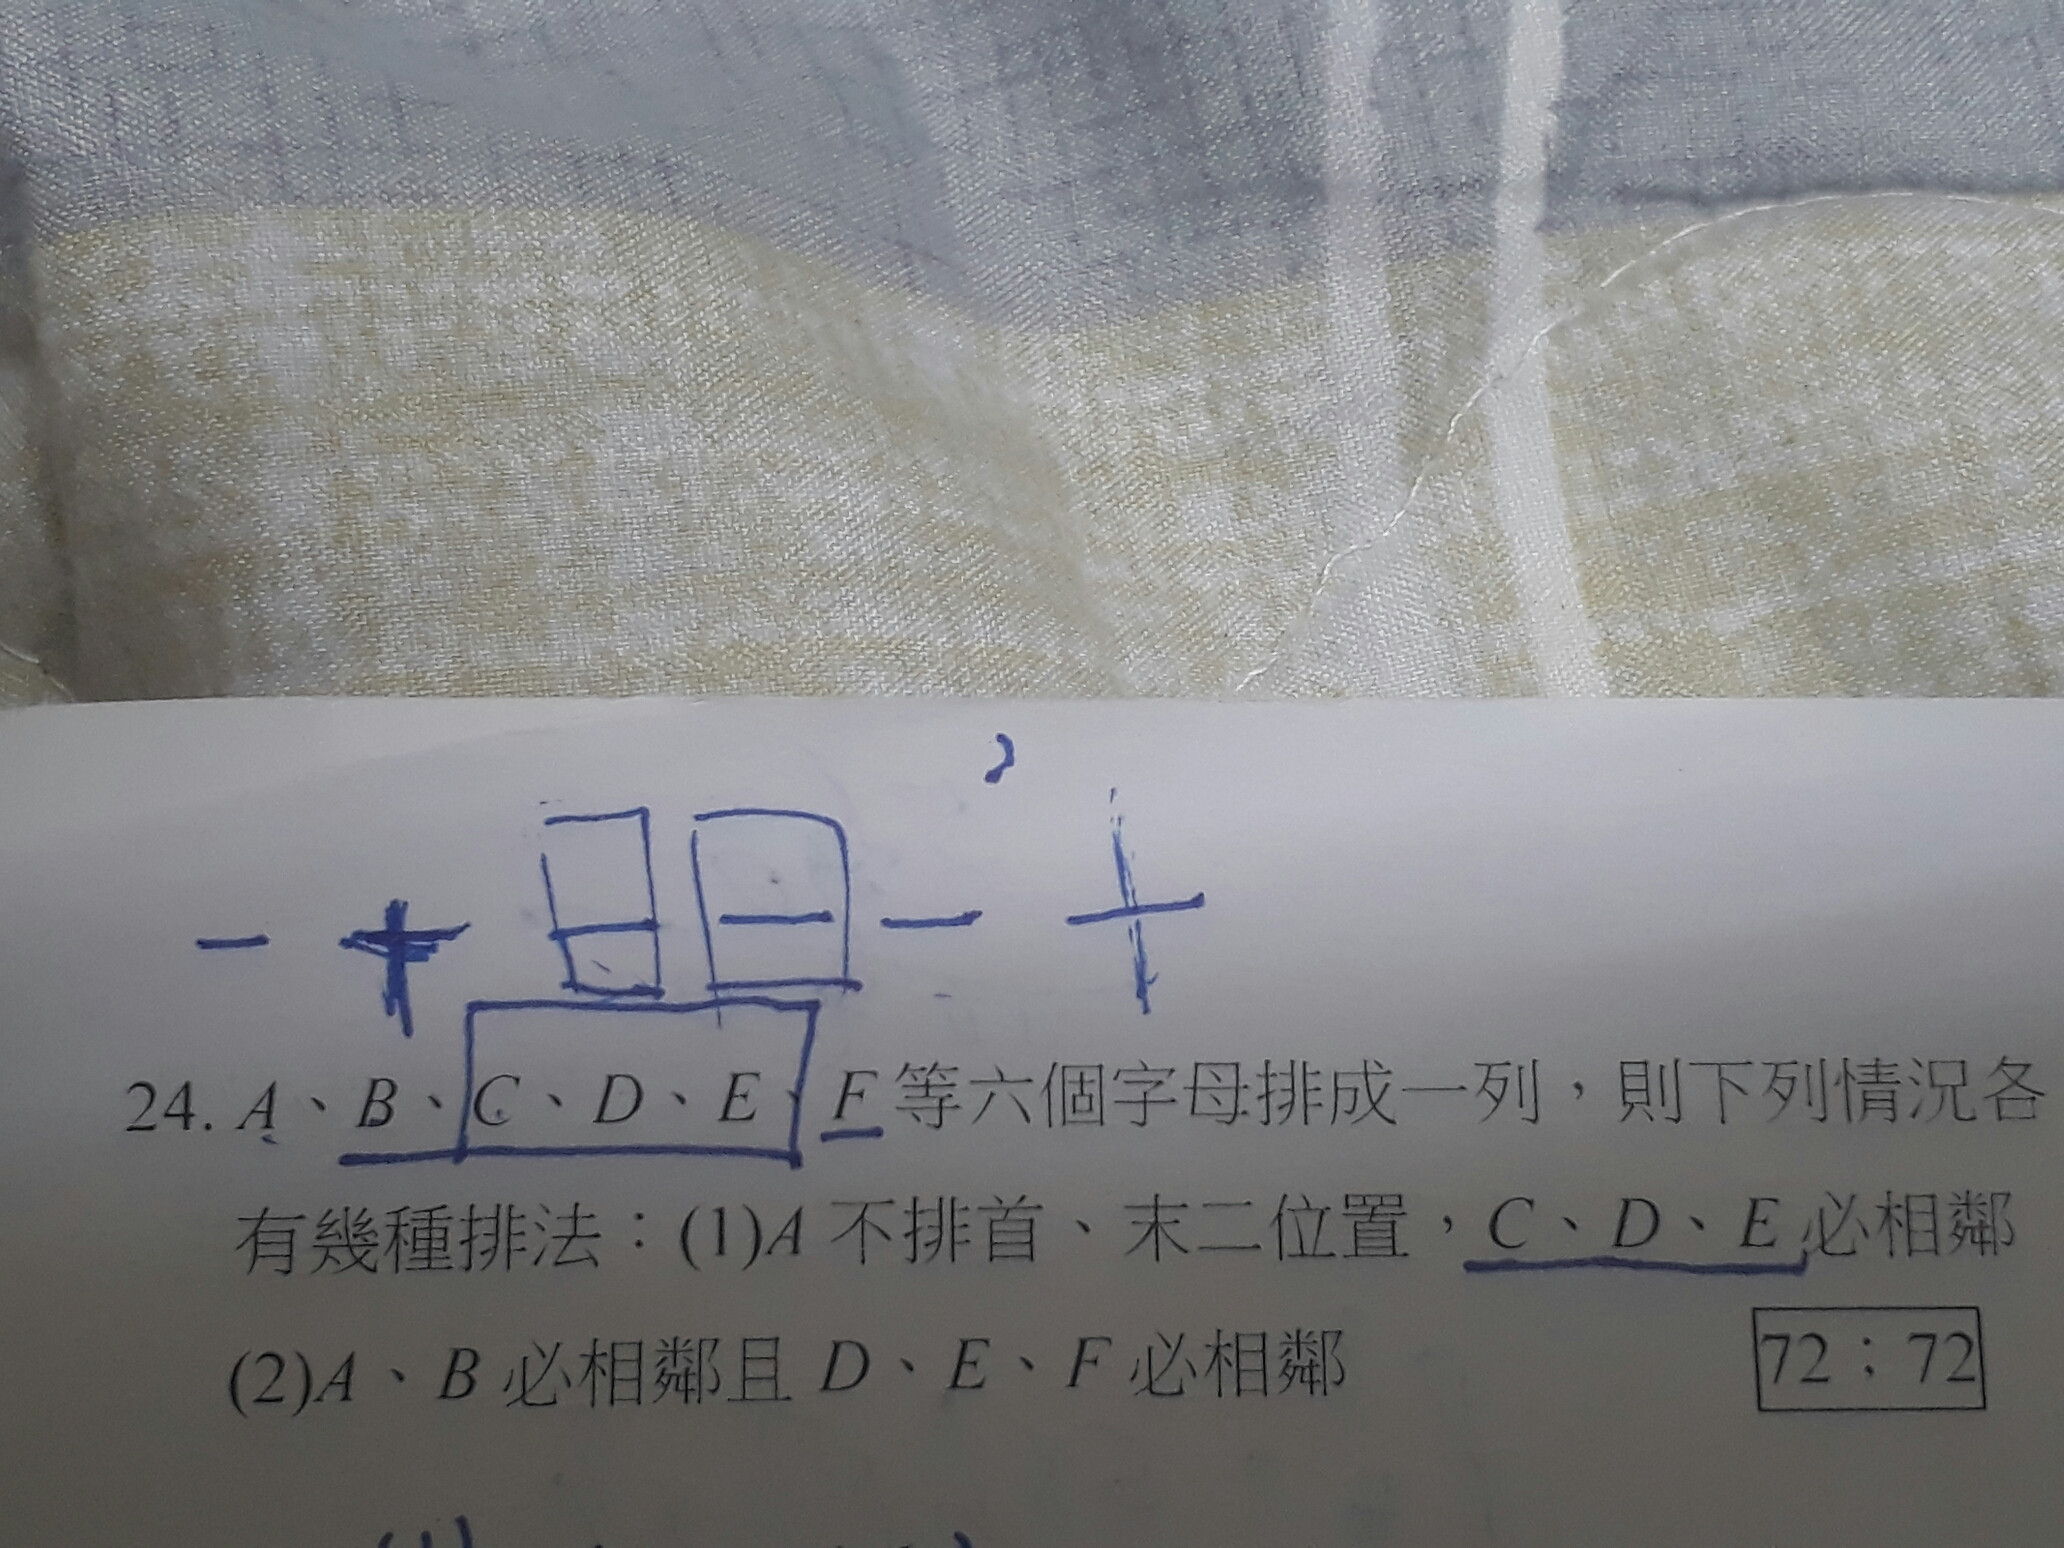 24. A、B、C、D、E、F 等六個字母排成一列，則下列情況各
有幾種排法：(1)A 不排首、末二位置，C、D、E 必相鄰
(2)A、B 必相鄰且 D、E、F 必相鄰 72；72